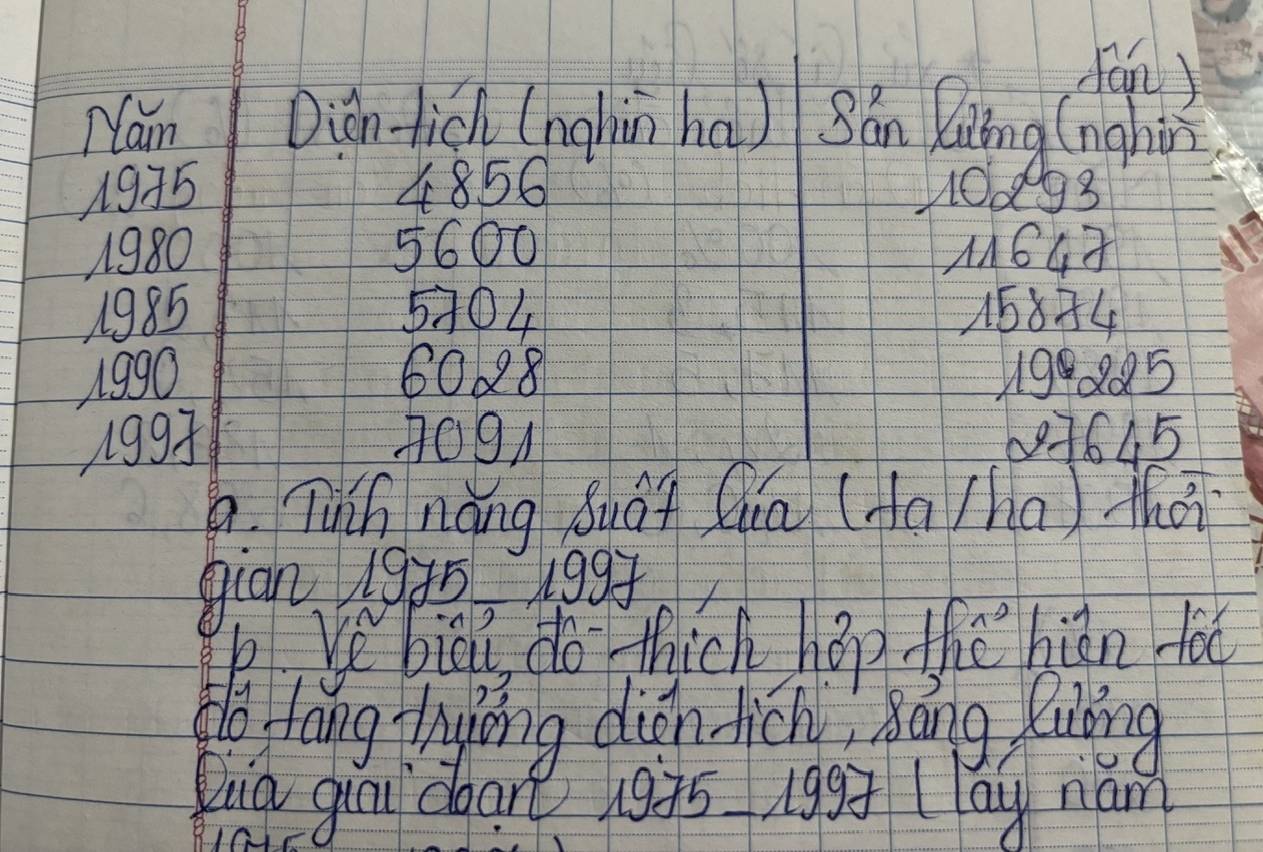 tấn)
Năm Diện tích (nghìn ha) Sản lượng (nghìn
1975 4856 10293
1980 5600 11647
1985 5704 15874
1990 6028 19225
1997 7091 27645
a. Tính năng suất lúa (tạ/ha) thời
gian 1975_1997
b. Vẽ biểu đồ thích hợp thể hiện tốc
độ tăng trưởng diện tích, sảng lượng
lúa giai đoạn 1975_1997 (lấy năm